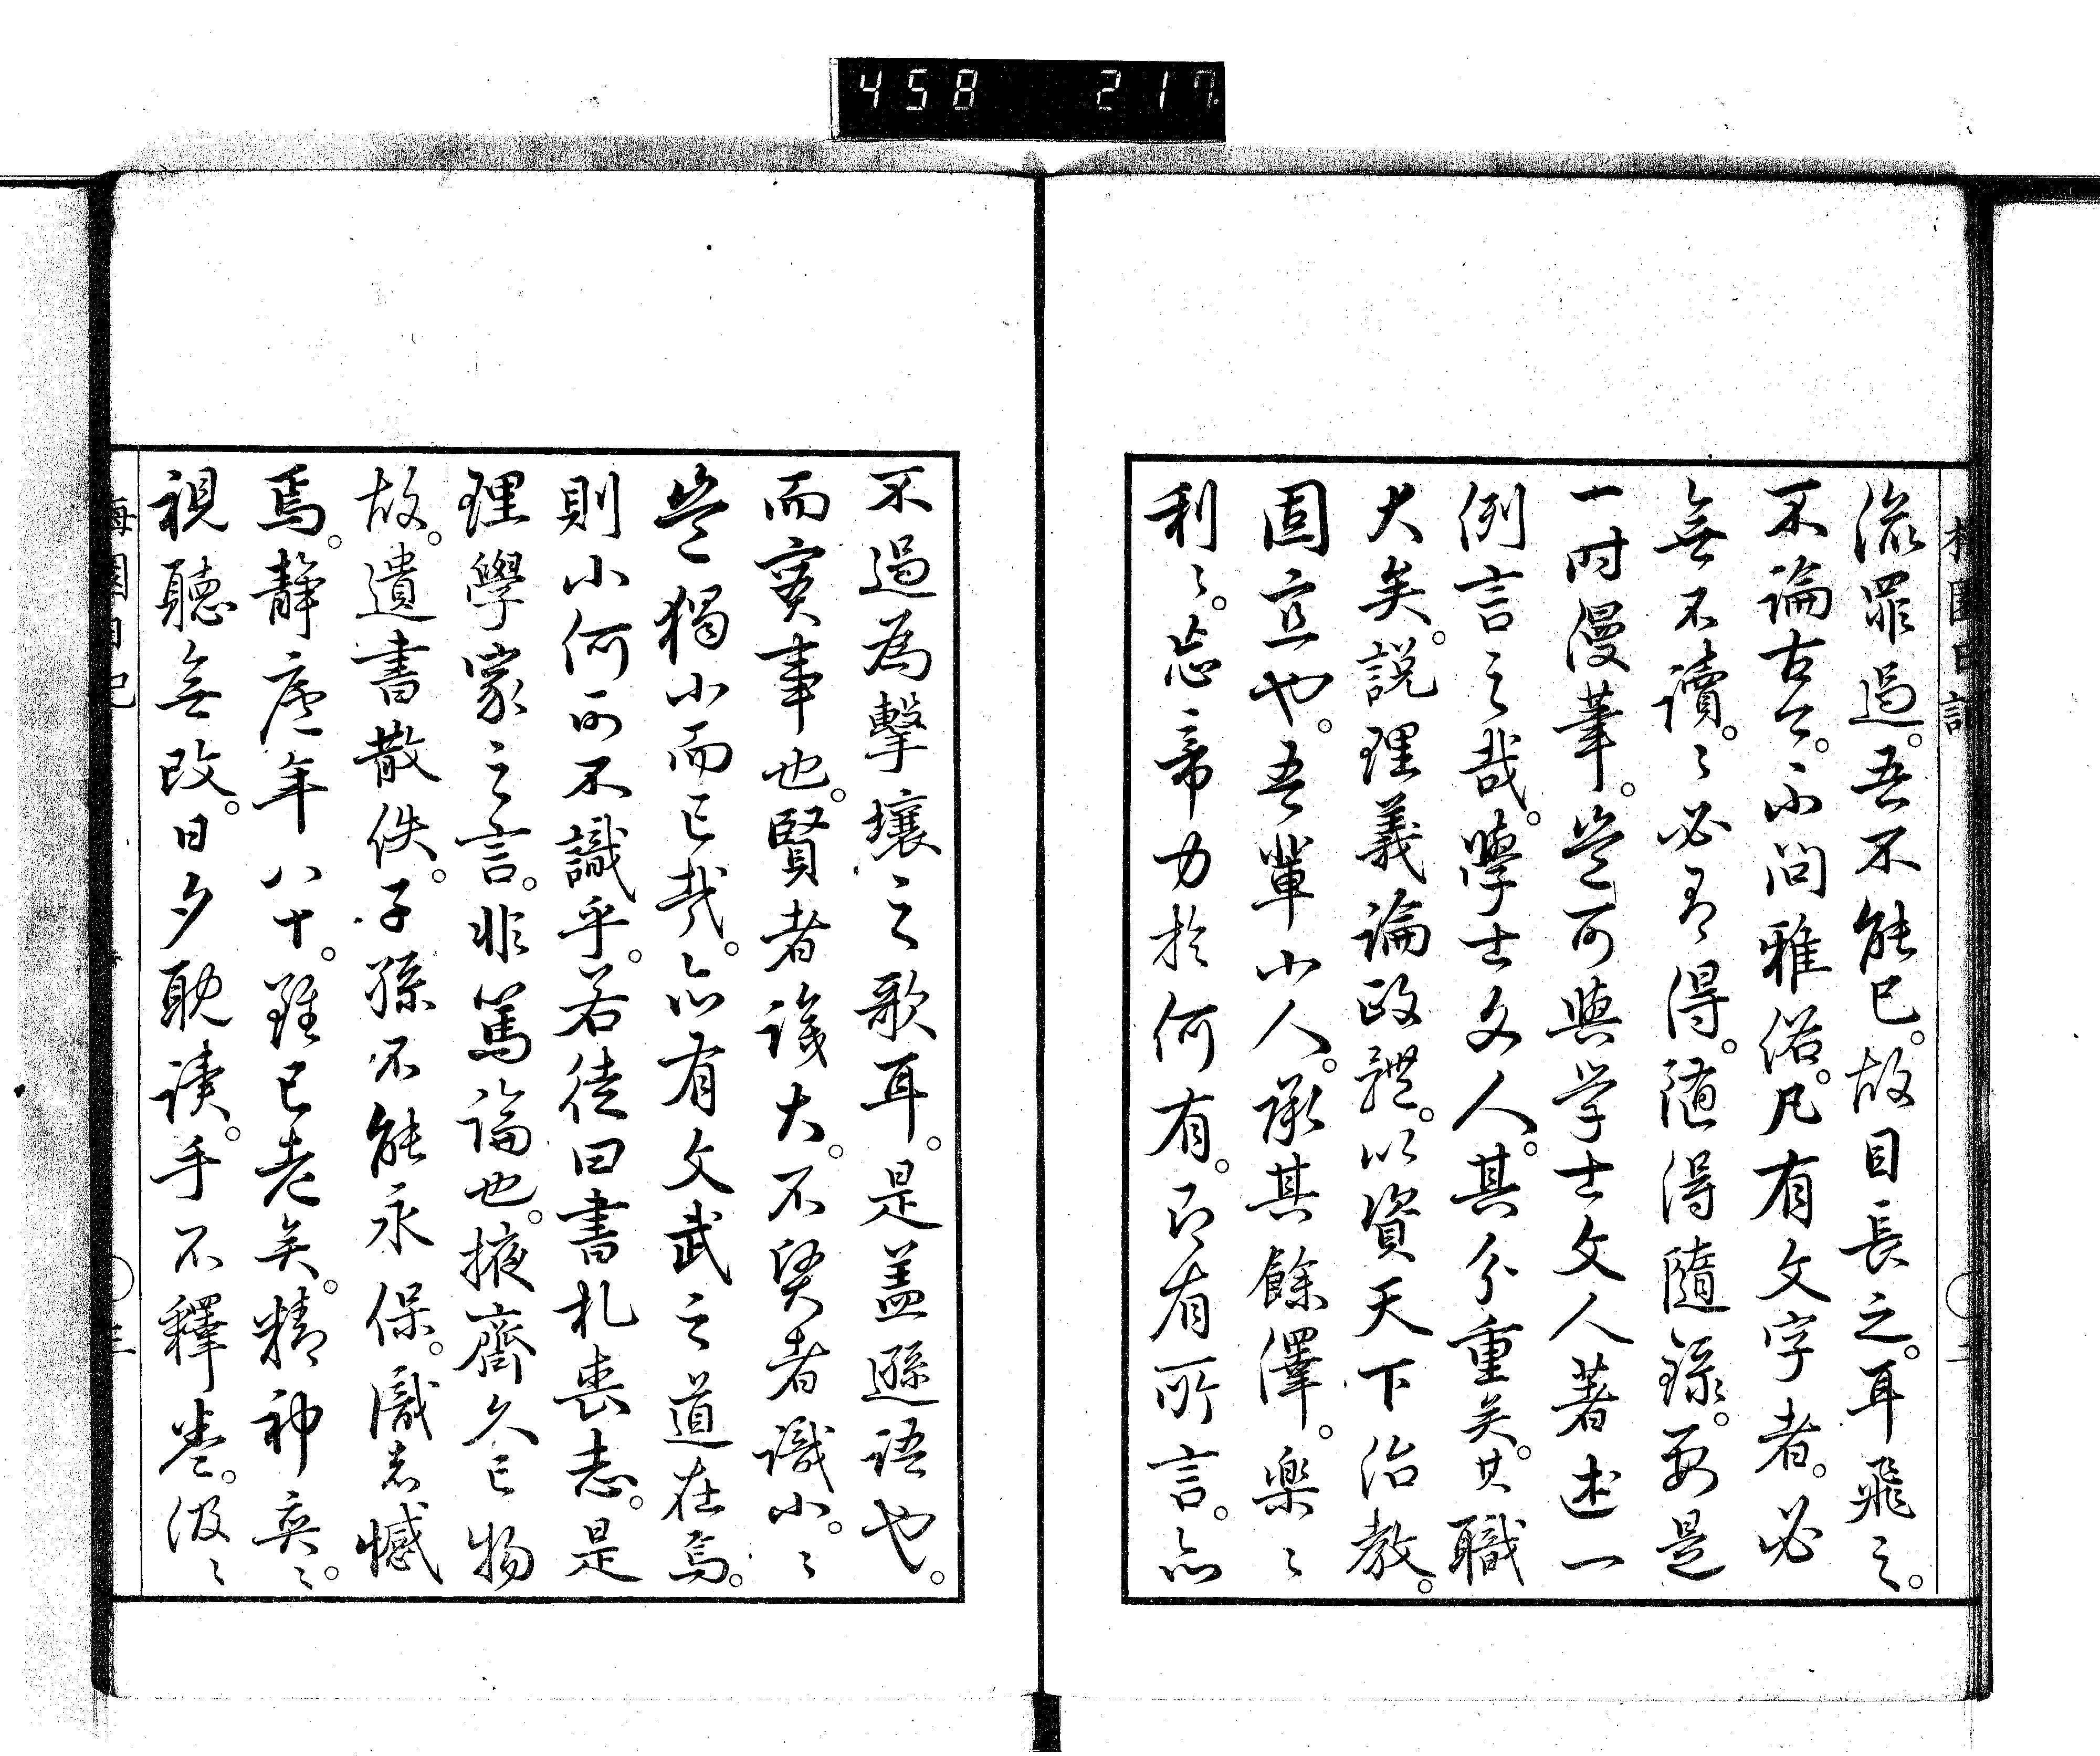 458 217
梅園日記
流罪過。吾不能已。故目長之。耳飛之。
不論古今。不問雅俗。凡有文字者。必
無不讀。〻必有得。随得隨録。要是
一时漫筆。豈可與学士文人著述一
例言之哉。學士文人。其分重矣。其職
大矣。説理義論政體。以資天下治教。
固宜也。吾輩小人。承其餘澤。楽〻
利〻。忘帝力於何有。即有所言。亦
不過為擊壤之歌耳。是盖遜語也。
而実事也。賢者識大。不賢者識小。〻
豈獨小而已哉。亦有文武之道在焉。
則小何所不識乎。若徒曰書札喪志。是
理學家之言。非篤論也。掖齋久已物
故。遺書散佚。子孫不能永保。識者憾
焉。靜廬年八十。雖已老矣。精神奕〻。
視聽無改。日夕耽读。手不釋巻。汲〻
梅園日記
三